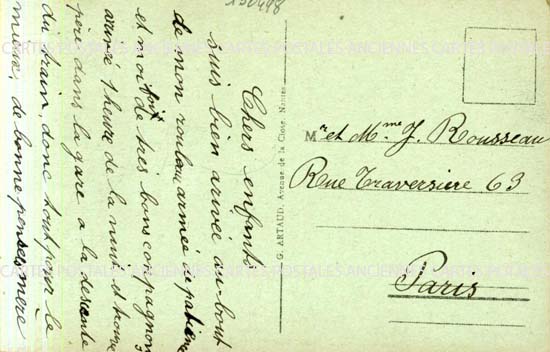 150498
Chers enfants
suis bien arrivée au bout
de mon rouleau, armée de patience
et moi de très bons compagnons
arrivée 1 heure de la nuit et trouve
père dans la gare a la descente
du train, donc tout pour le
mieux, de bonne pensées mere
G. ARTAUD, Avenue de la Close, Nantes
Mr et Mme J. Rousseau
Rue Traversiere 63
Paris
CARTES POSTALES ANCIENNES CARTES POSTALES ANCIENNES CARTES POSTALES
CARTES POSTALES ANCIENNES CARTES POSTALES ANCIENNES CARTES POSTALES